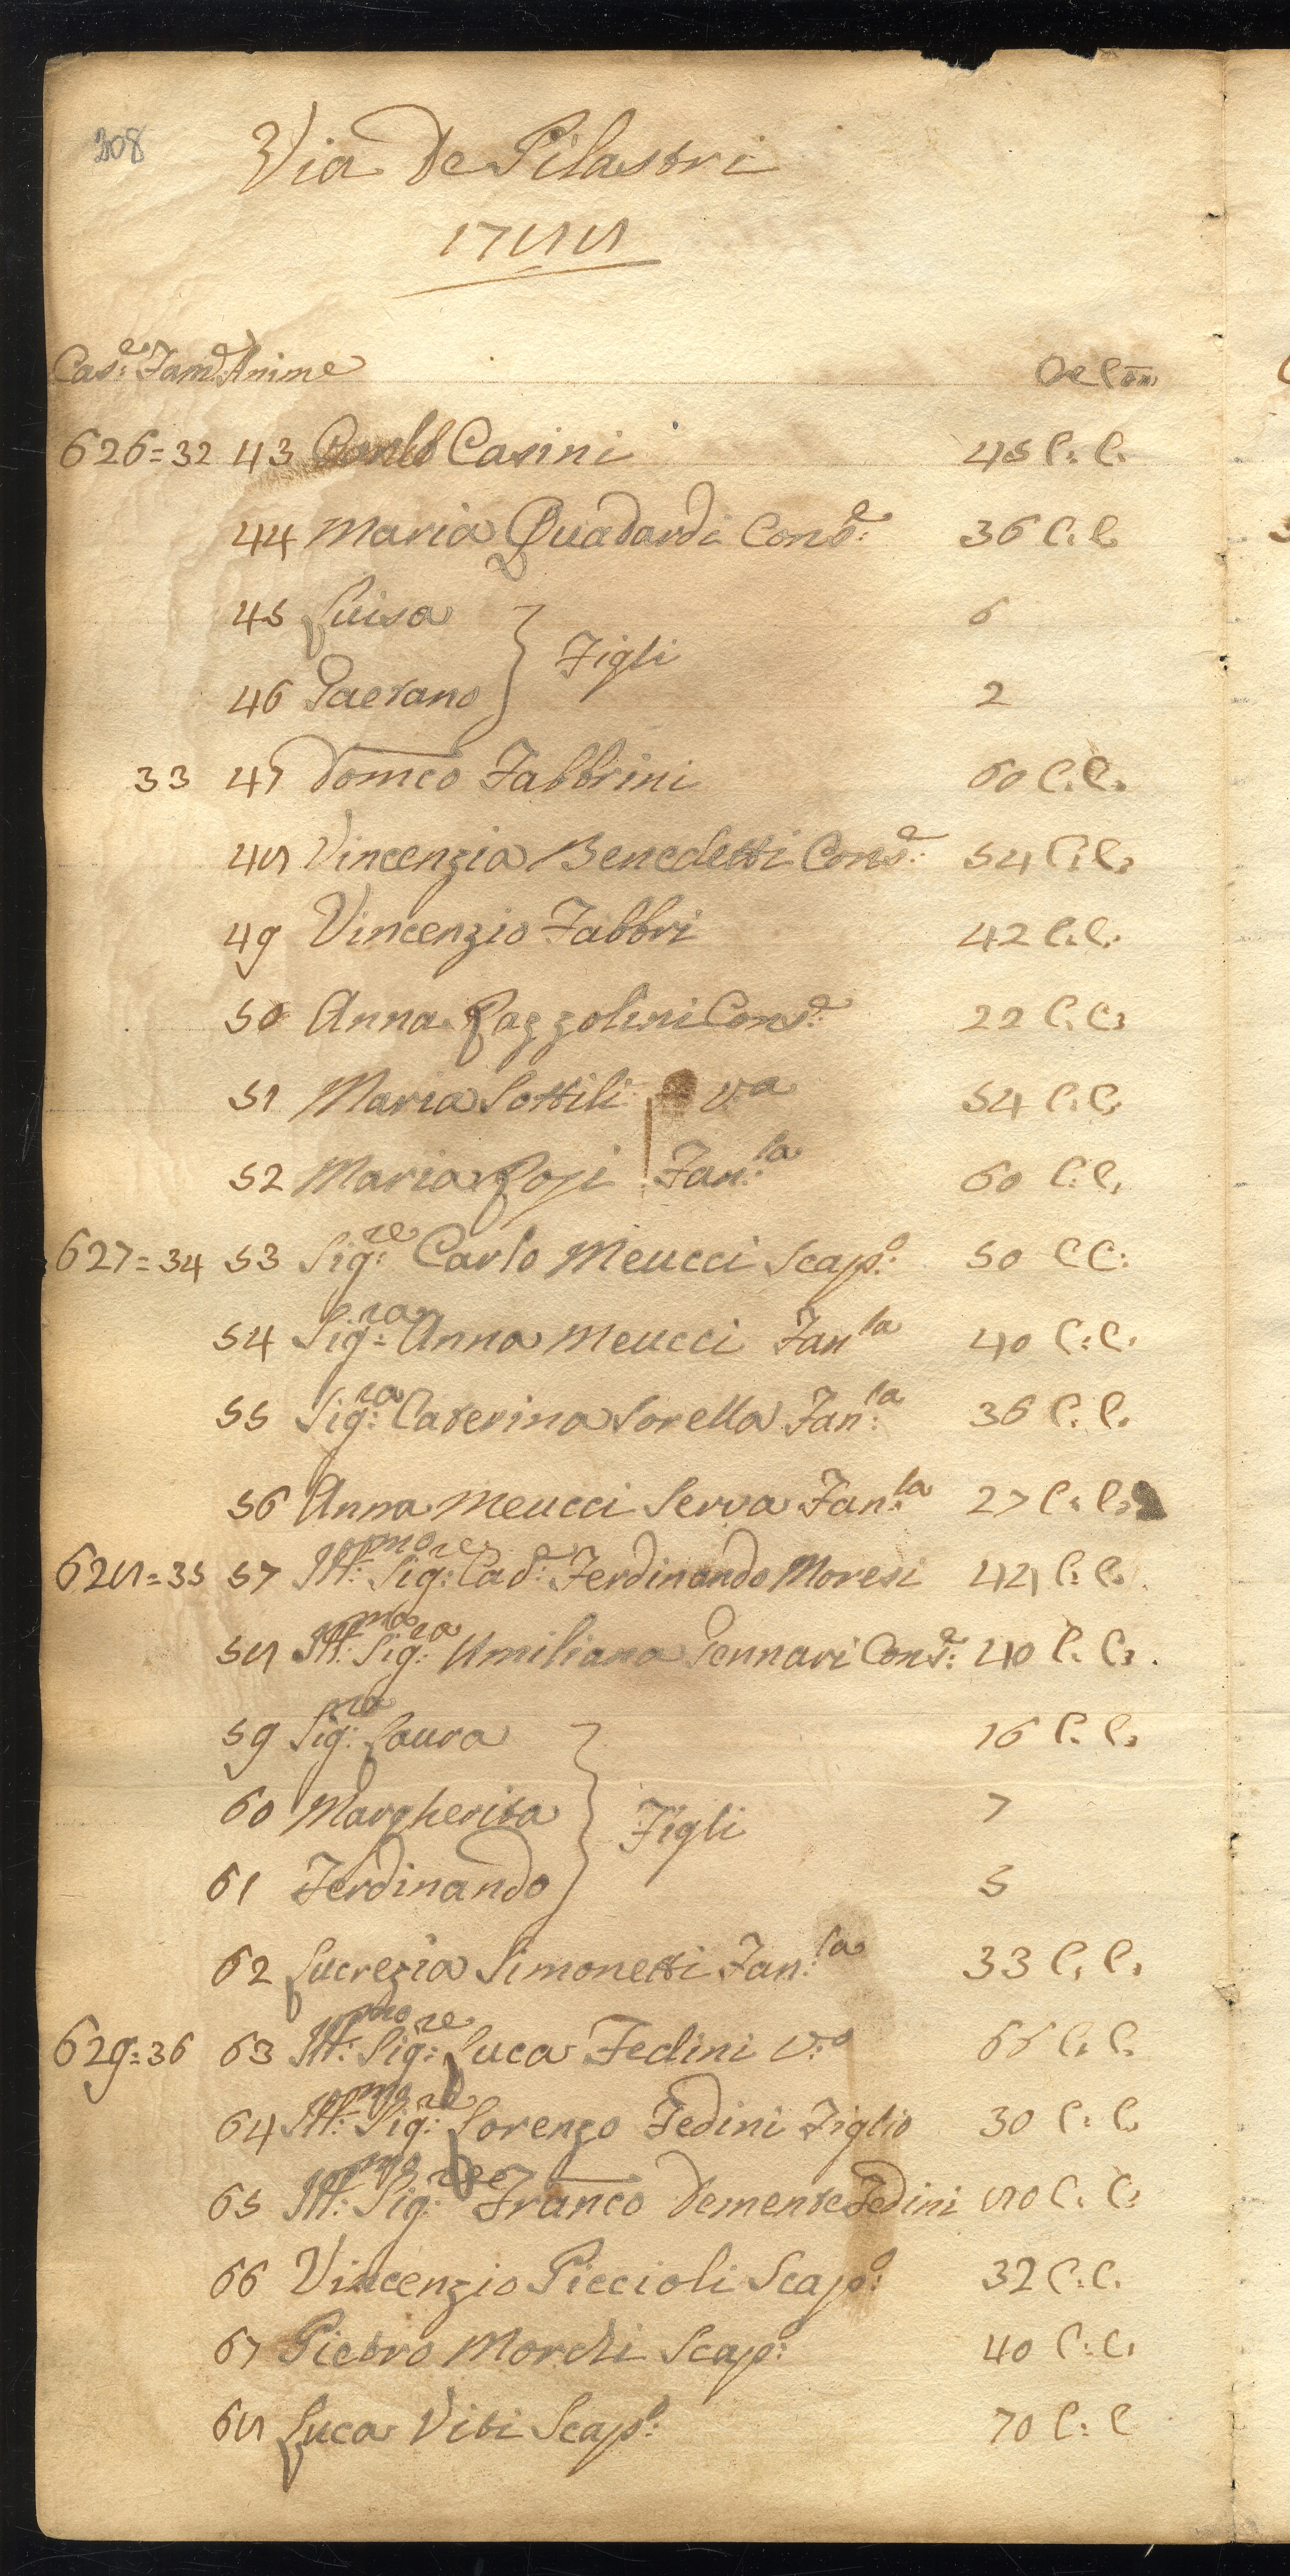 208
Via De Pilastri
1788
Cas:e Fam:e Anime
626=32 43 Casini 45 C: C.
44 Maria Quadardi Cons:e 36 C. C
45 Luisa 6
Figli
46 Gaetano 2
33 47 Domco Fabbrini 60 C. C.
48 Vincenzia Benedetti Cons:e 54 C: C.
49 Vincenzio Fabbri 42 C. C.
50 Anna Cons:e 22 C. C.
51 Maria Sottili v:a 54 C. C.
52 Maria Fan:la 60 C: C.
627=34 53 Sig:re Carlo Meucci Scap:o 50 C C:
54 Sig:ra Anna Meucci Fan:la 40 C: C.
55 Sig:ra Caterina Sorella Fan:la 36 C. C.
56 Anna Meucci Serva Fan:la 27 C. C.
628=35 57 Ill:mo Sig:re Cav:e Ferdinando Moresi 42 C. C.
58 Ill:ma Sig:ra Umiliana Gennari Cons:e 40 C. C.
59 Sig:ra Laura 16 C. C.
60 Margherita 7
Figli
61 Ferdinando 5
62 Lucrezia Simonetti Fan:la 33 C. C.
629=36 63 Ill:mo Sig:re Luca Fedini v:o 66 C. C.
64 Ill:mo Sig:re Lorenzo Fedini Figlio 30 C: C
65 Ill:mo Sig:re Franco Demente Fedini 80 C. C.
66 Vincenzio Piccioli Scap:o 32 C: C.
67 Pietro Morchi Scap:o 40 C: C.
68 Luca Viti Scap:o 70 C: C